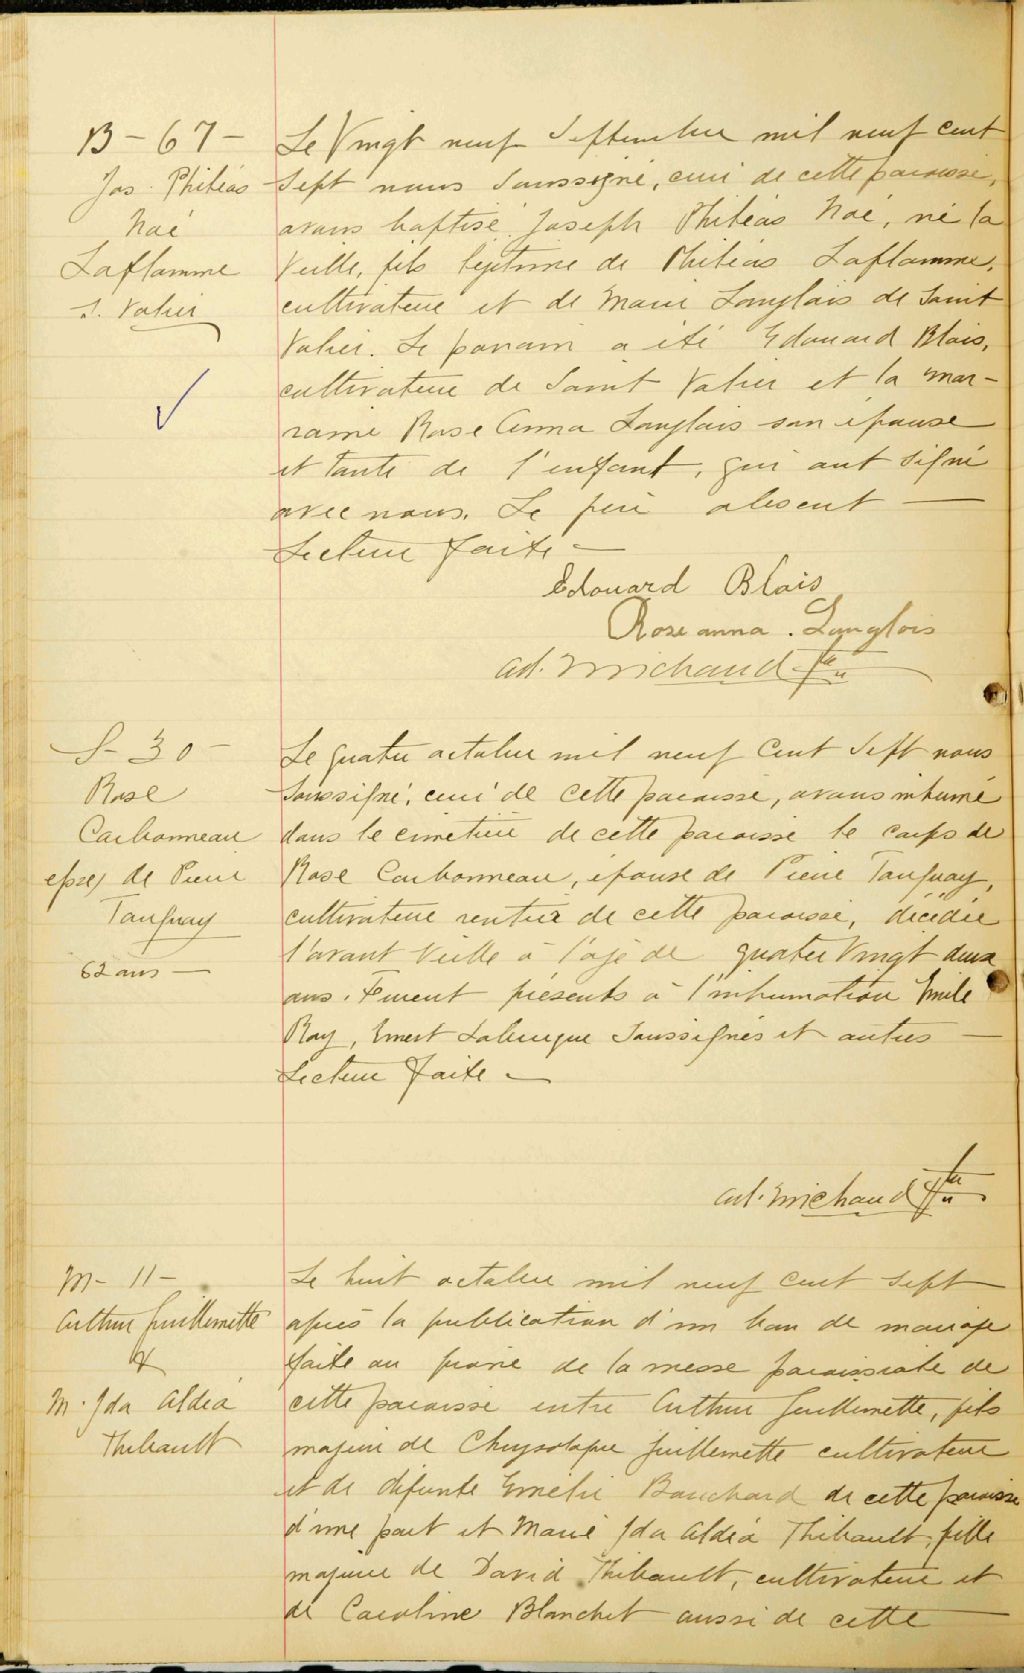 B - 67 -
Jos. Philéas
Noé
Laflamme
S. Valier
Le Vingt neuf Septembre mil neuf cent
sept nous soussigné, curé de cette paroisse,
avons baptisé Joseph Philéas Noé, né la
veille, fils légitime de Philéas Laflamme,
cultivateur et de Marie Langlois de Saint
Valier. Le parrain a été Edouard Blais,
cultivateur de Saint Valier et la mar-
raine Rose Anna Langlois son épouse
et tante de l'enfant, qui ont signé
avec nous. Le père absent —
Lecture faite —
Edouard Blais
Rose anna. Langlois
Ad. Michaud Ptre
S - 30 -
Rose
Carbonneau
epse de Pierre
Tanguay
62 ans —
Le quatre octobre mil neuf cent sept nous
soussigné, curé de cette paroisse, avons inhumé
dans le cimetière de cette paroisse le corps de
Rose Carbonneau, épouse de Pierre Tanguay,
cultivateur rentier de cette paroisse, décédée
l'avant veille à l'age de quatre vingt deux
ans. Furent présents à l'inhumation Emile
Roy, Ernest Labrecque soussignés et autres —
Lecture faite —
Ad. Michaud Ptre
M - 11 -
Arthur Guillemette
&
M. Ida Aldéa
Thibault
Le huit octobre mil neuf cent sept
après la publication d'un ban de mariage
faite au prône de la messe paroissiale de
cette paroisse entre Arthur Guillemette, fils
majeur de Chrysologue Guillemette cultivateur
et de défunte Emélie Bouchard de cette paroisse
d'une part et Marie Ida Aldéa Thibault, fille
majeure de David Thibault, cultivateur et
de Caroline Blanchet aussi de cette —